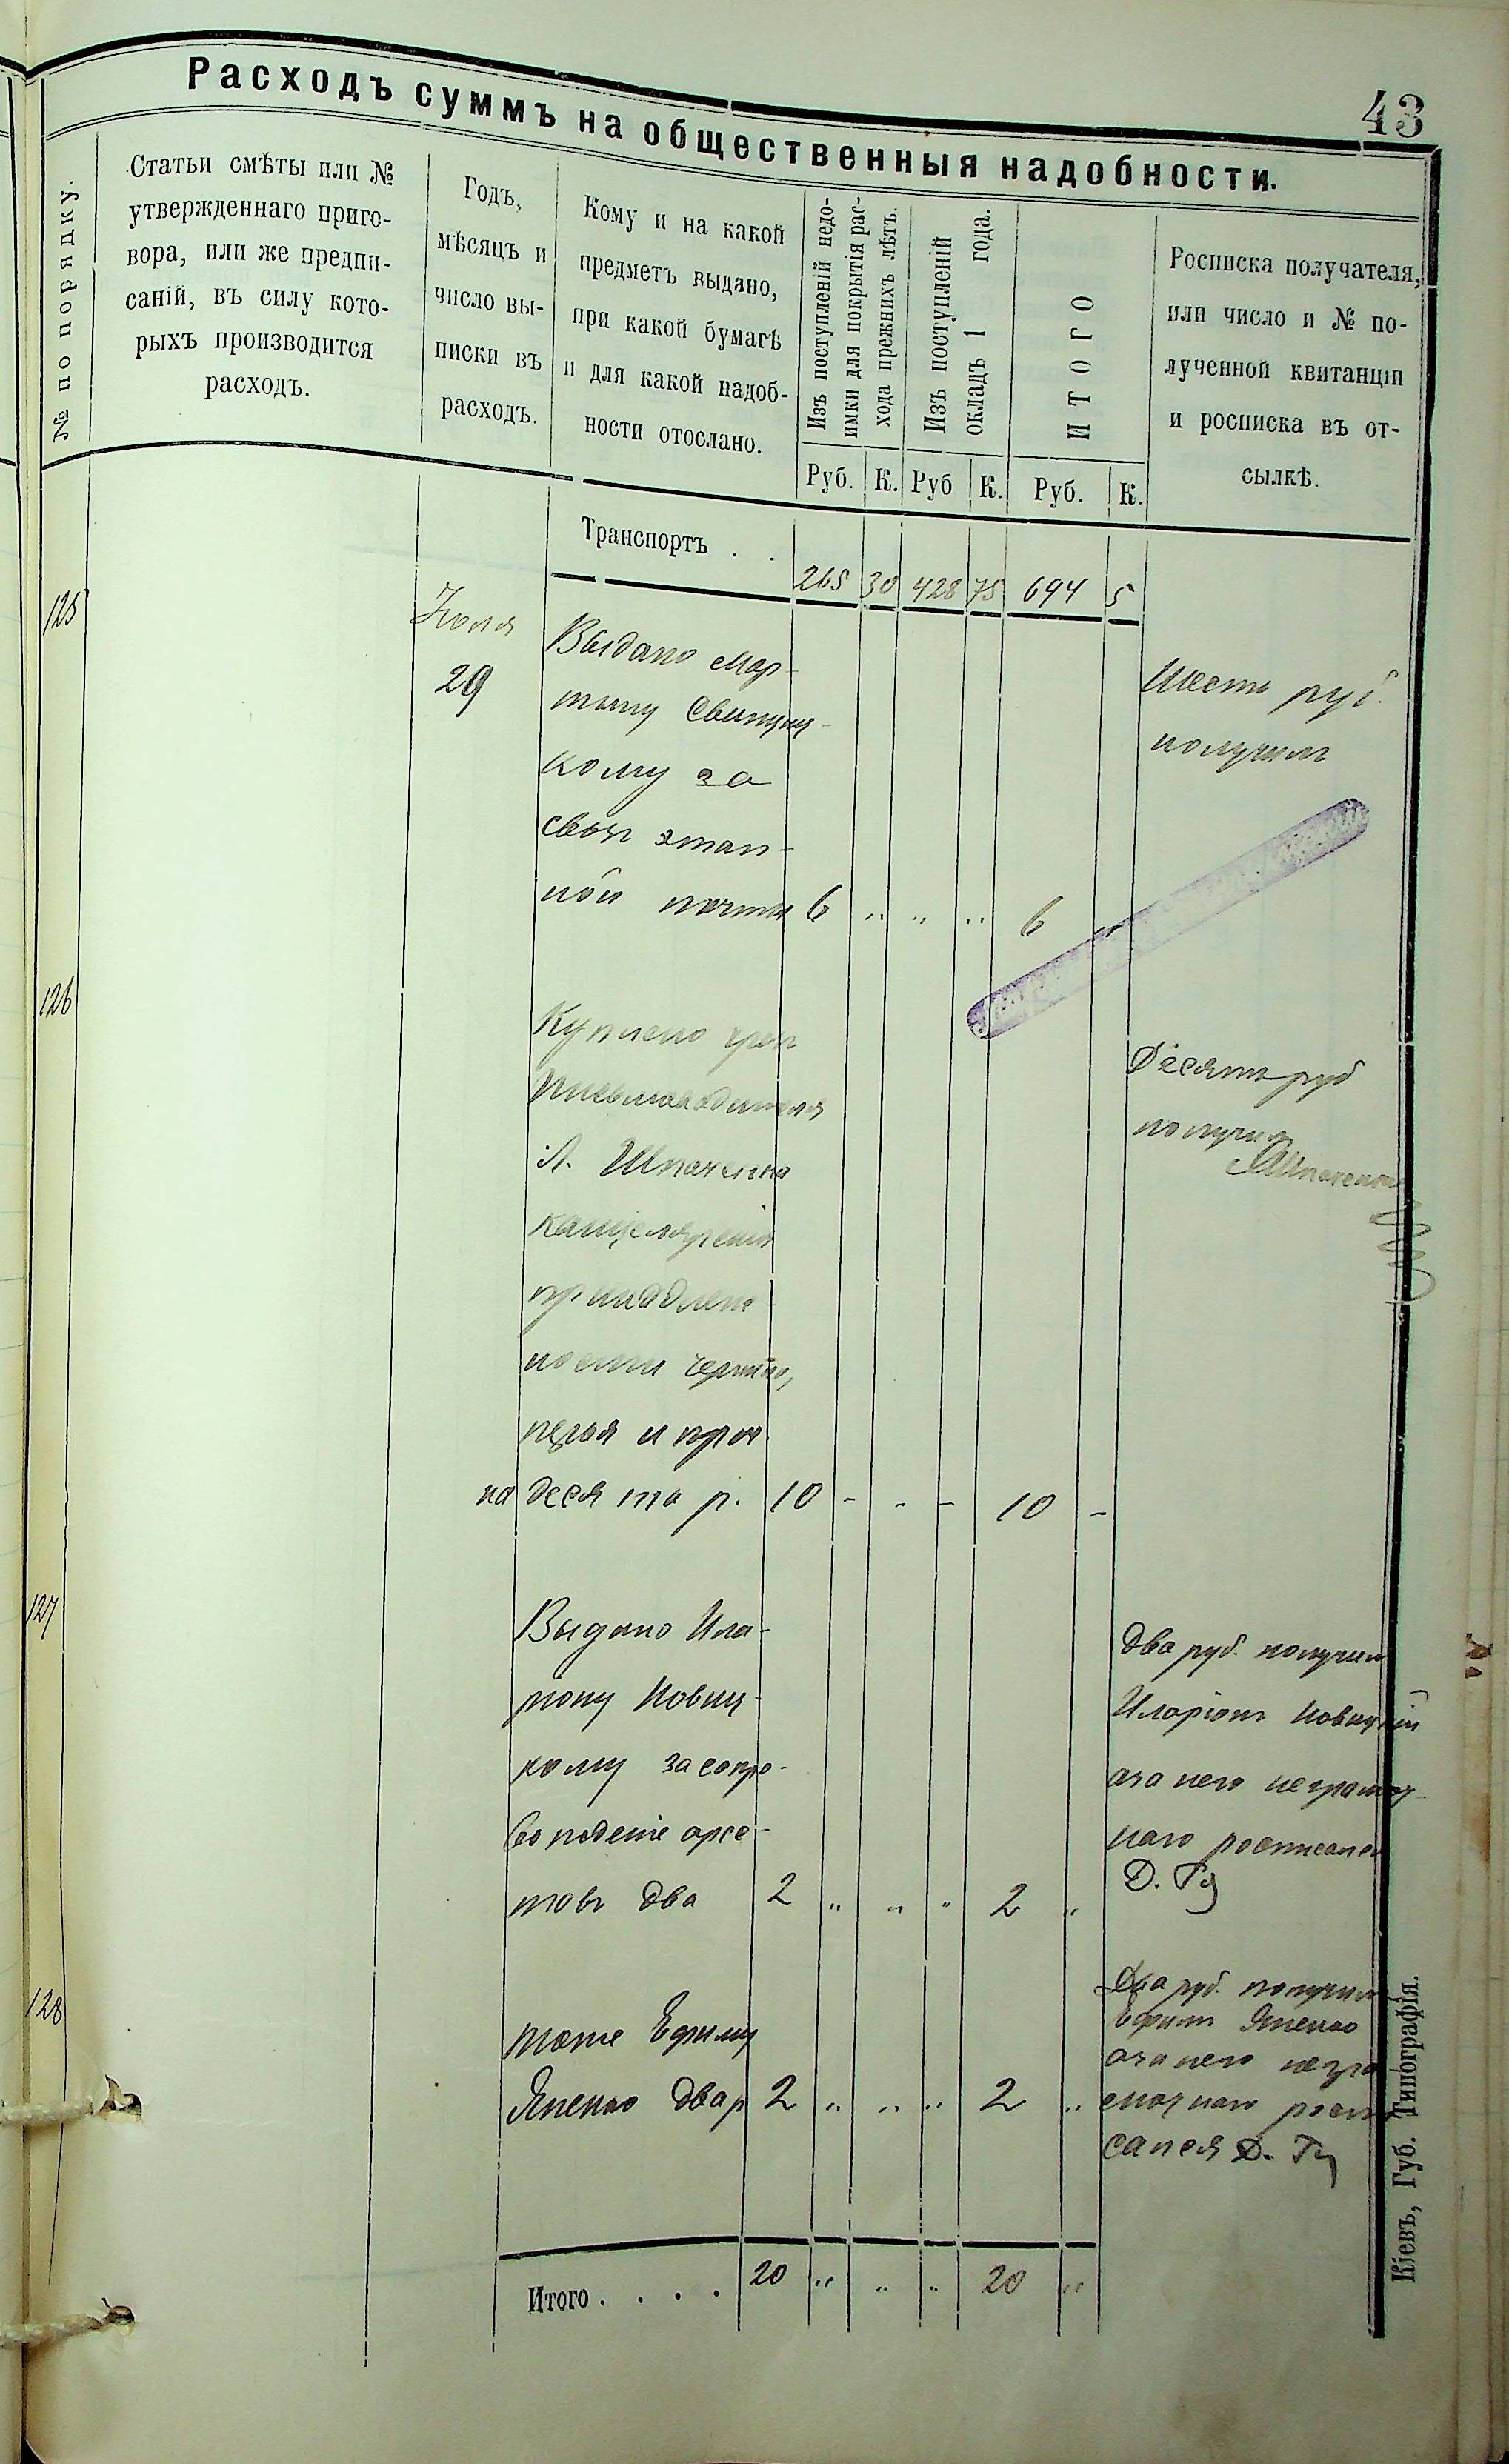 43
Расходъ суммъ на общественныя надобности.
№ по порядку.
Статьи смѣты или №
утвержденнаго приго-
вора, или же предпи-
саній, въ силу кото-
рыхъ производится
расходъ.
Годъ,
мѣсяцъ и
число вы-
писки въ
расходъ.
Кому и на какой
предметъ выдано,
при какой бумагѣ
и для какой надоб-
ности отослано.
Изъ поступленій недо-
имки для покрытія рас-
хода прежнихъ лѣтъ.
Изъ поступленій
окладъ 1 года.
ИТОГО
Росписка получателя,
или число и № по-
лученной квитанціи
и росписка въ от-
сылкѣ.
Руб. К. Руб К. Руб. К.
Транспортъ . . 265 30 428 75 694 5
125
29
Выдано Мар-
тыну Свинциц-
кому за
свои этап-
ной почты 6 „ „ „ 6
Шесть руб.
получилъ
126
Куплено чрез
письмоводителя
А. Шпаченка
канцелярскія
принадлеж-
ности чернило,
перья и проч
на десять р. 10 - - - 10 -
Десять руб
получилъ
АШпаченко
127
Выдано Ила-
ріону Новиц-
кому за сопро-
вожденіе арес-
товъ два 2 „ „ „ 2 „
Два руб. получилъ
Иларіонъ Новицкій
а за него неграмот-
наго росписался
128
тоже Ефиму
Яненко два р 2 „ „ „ 2 „
Два руб. получилъ
Ефимъ Яненко
а за него негра
мотнаго роспи
сался
Итого . . . . 20 „ „ „ 20 „
Кіевъ, Губ. Типографія.